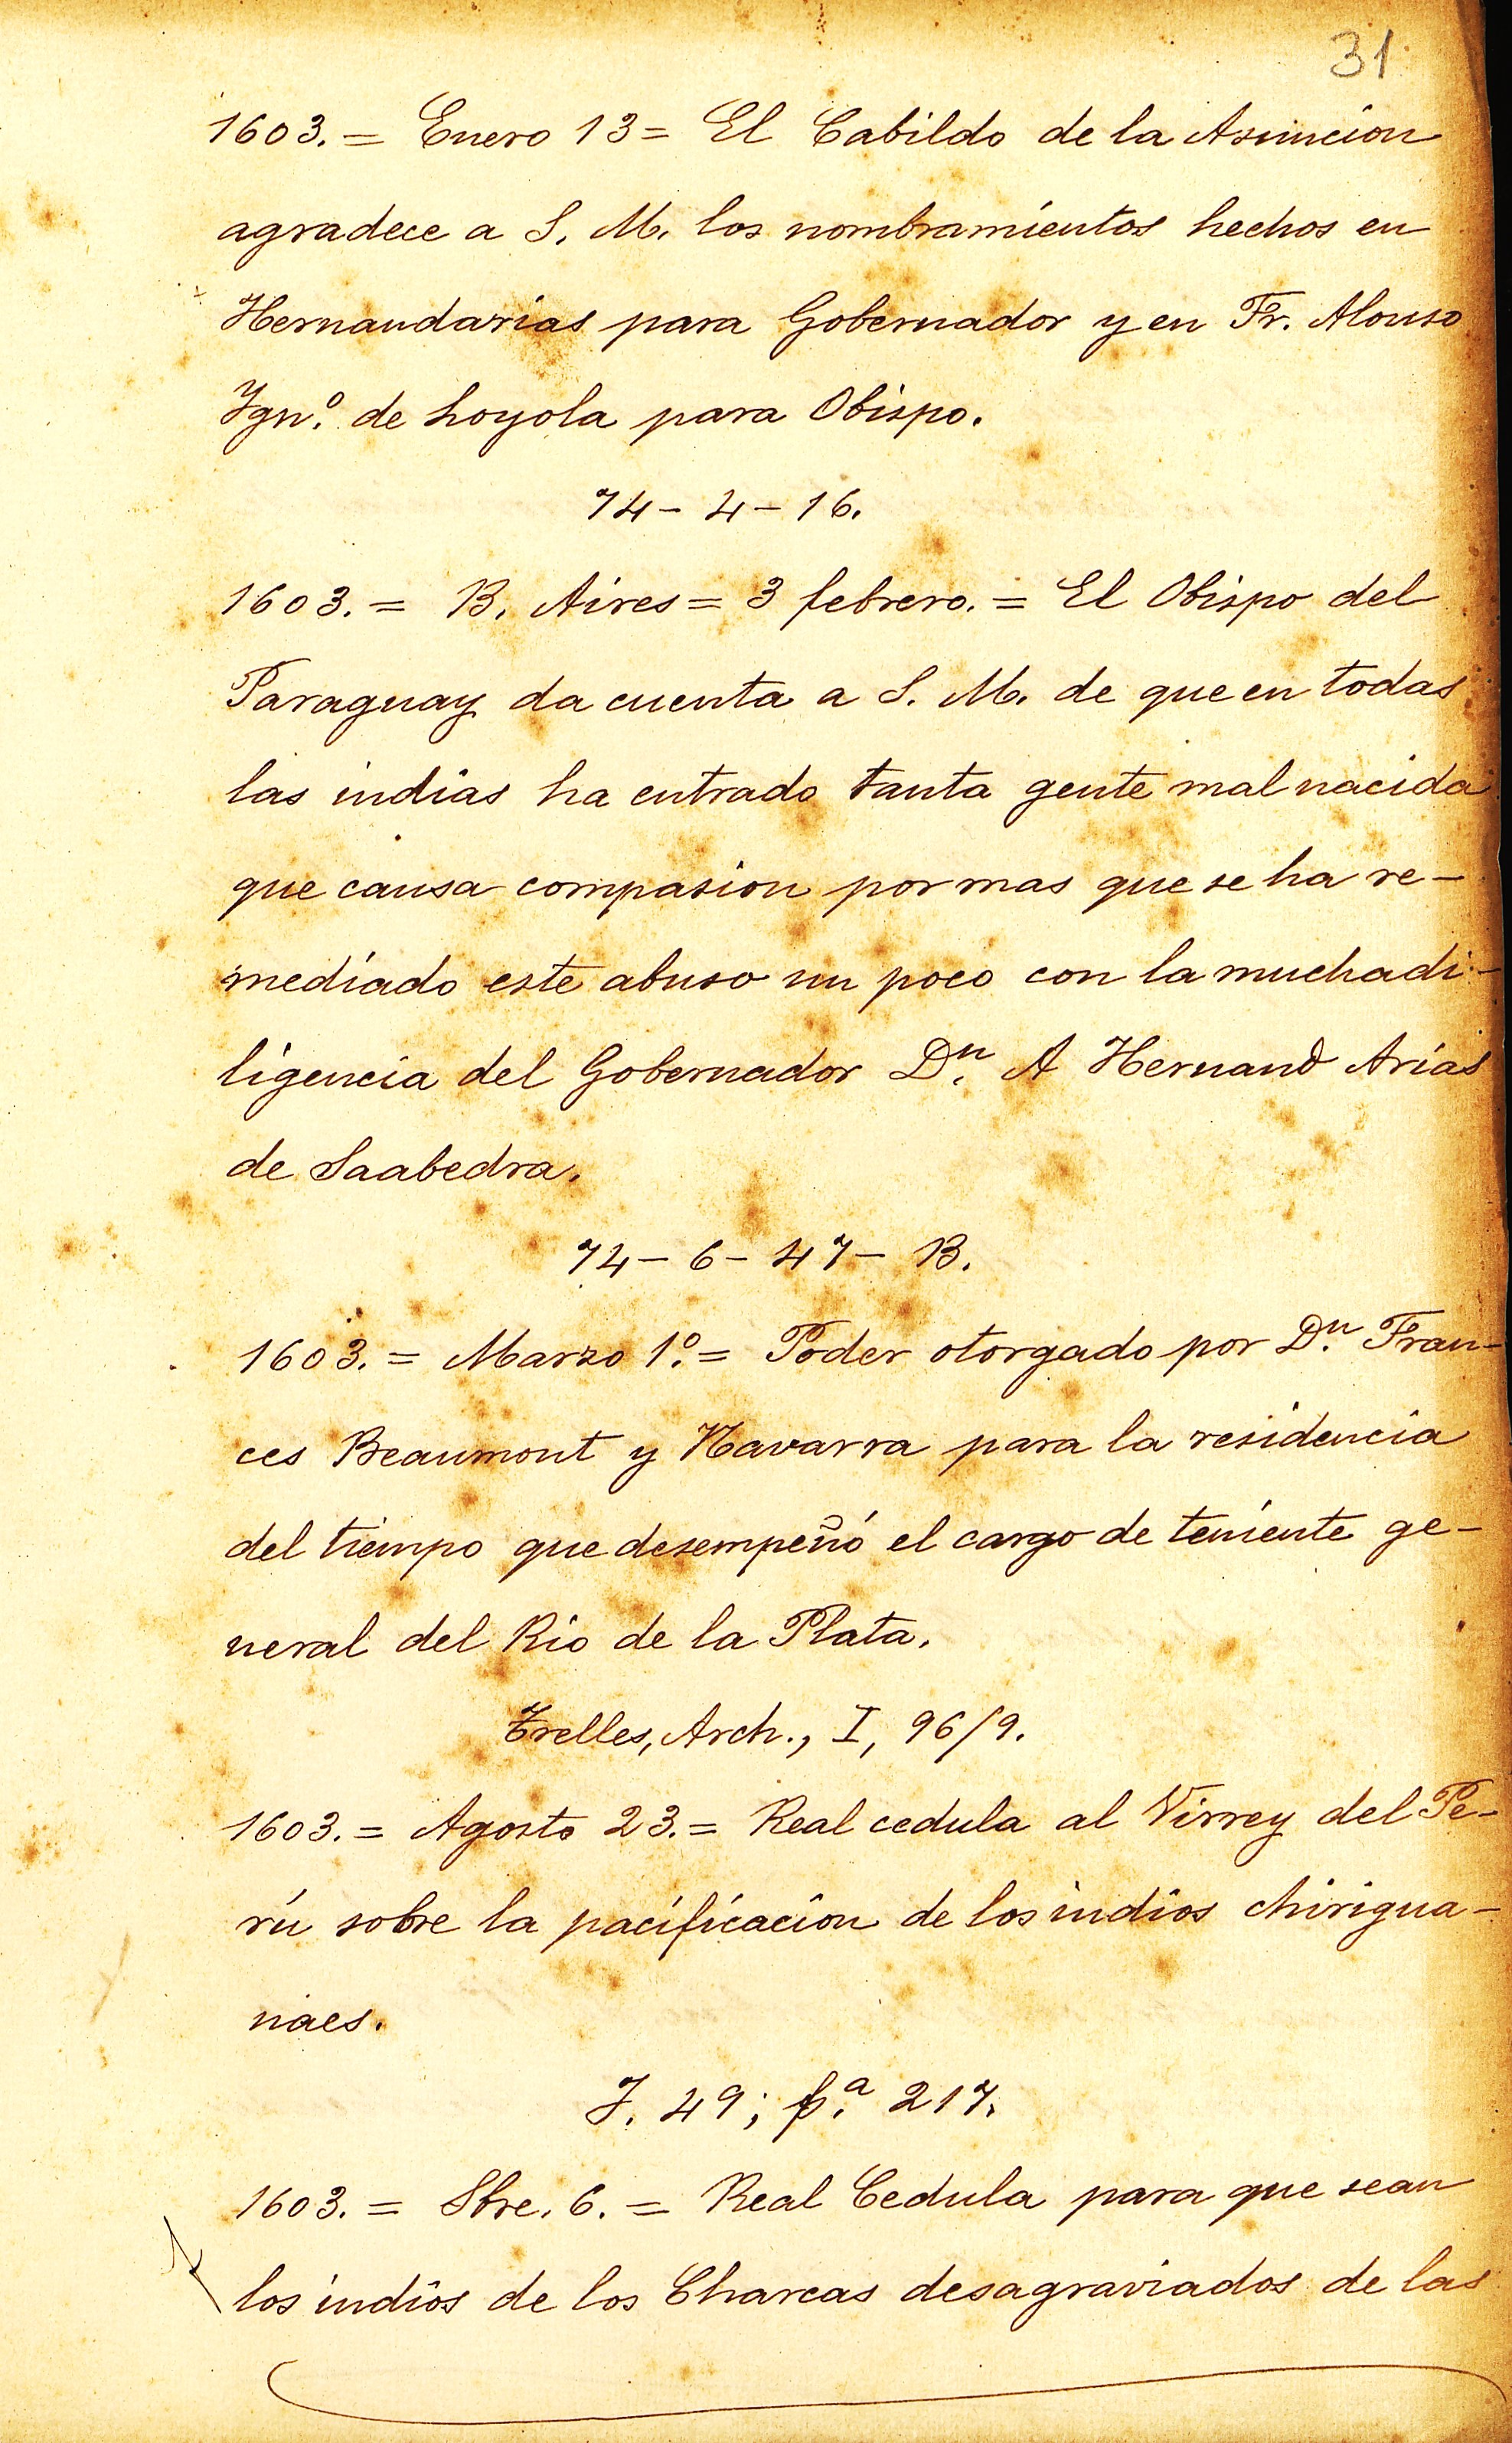 31
1603. = Enero 13 = El Cabildo de la Asuncion
agradece a S. M. los nombramientos hechos en
Hernandarias para Gobernador y en Fr. Alonso
Ygn.º de Loyola para Obispo.
74 - 4 - 16.
1603. = B. Aires = 3 febrero. = El Obispo del
Paraguay da cuenta a S. M. de que en todas
las indias ha entrado tanta gente mal nacida
que causa compasion por mas que se ha re-
mediado este abuso un poco con la mucha di-
ligencia del Gobernador D.n A Hernand Arias
de Saabedra.
74 - 6 - 47 - B.
1603. = Marzo 1.º = Poder otorgado por D.n Fran-
ces Beaumont y Navarra para la residencia
del tiempo que desempeñó el cargo de teniente ge-
neral del Rio de la Plata.
Trelles, Arch., I, 96/9.
1603. = Agosto 23. = Real cedula al Virrey del Pe-
rú sobre la pacificacion de los indios chirigua-
naes.
J. 49; f.ª 217.
1603. = Sbre. 6. = Real Cedula para que sean
los indios de los Charcas desagraviados de las